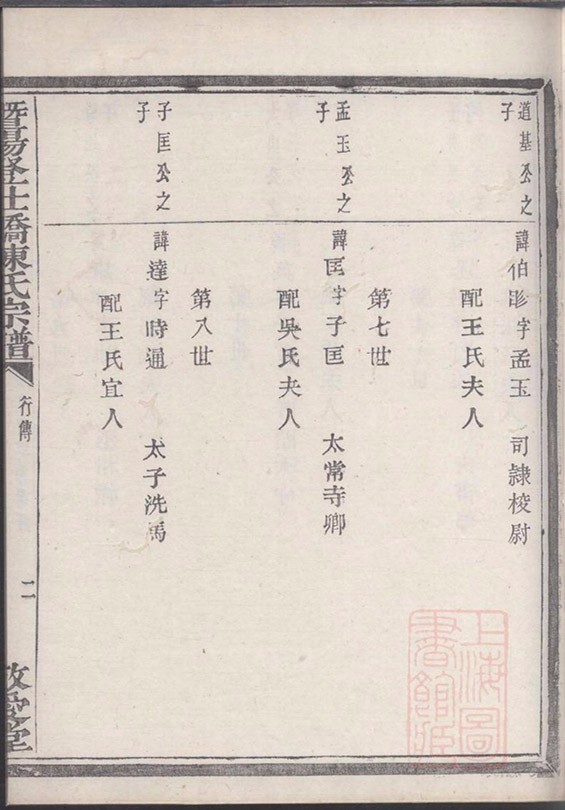 道基公之
子
諱伯眕字孟玉 司隸校尉
配王氏夫人
第七世
孟玉公之
子
諱匡字子匡 太常寺卿
配吳氏夫人
第八世
子匡公之
子
諱達字時通 太子洗馬
配王氏宜人
暨陽登仕橋陳氏宗譜
行傳
二
敦愛堂
上海圖
書館藏